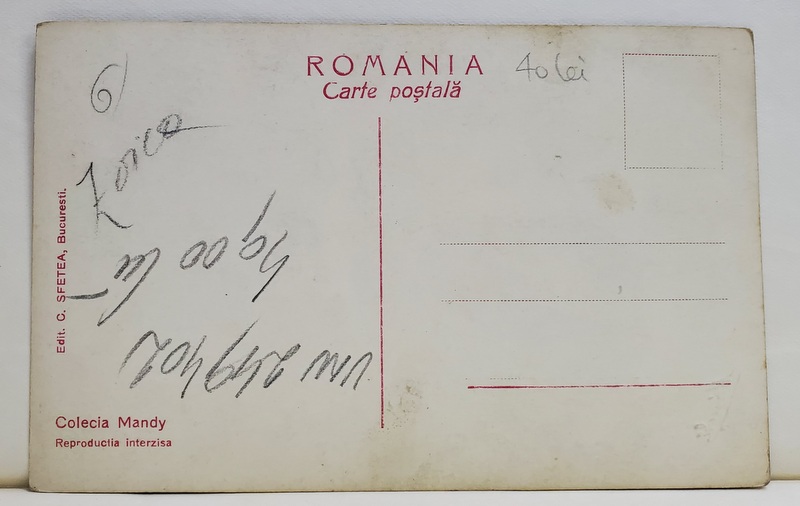 ROMANIA
Carte poştală
40 lei
6
Zoica
Edit. C. SFETEA, Bucuresti.
Colecia Mandy
Reproductia interzisa